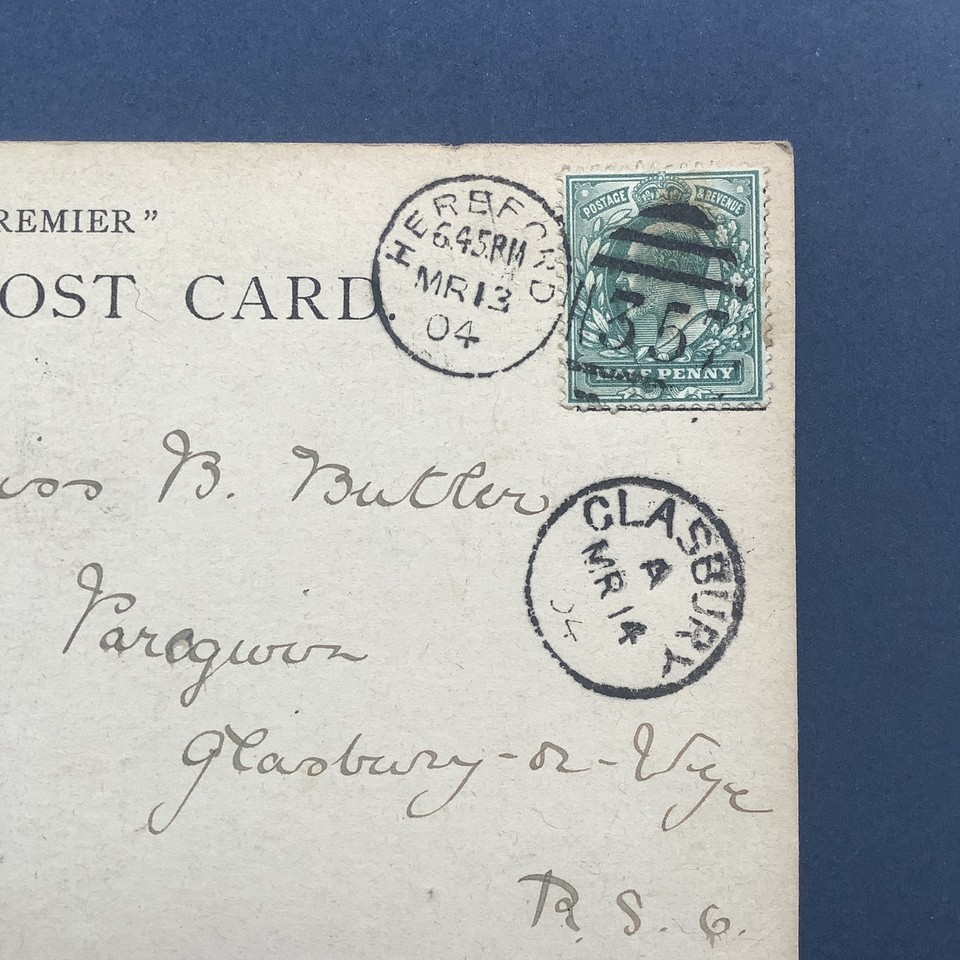 REMIER”
OST CARD.
HEREFORD
6.45PM
MR 13
04
POSTAGE & REVENUE
355
PENNY
iss B. Butler
CLASBURY
A
MR 14
04
Glasbury-on-Wye
R. S. O.